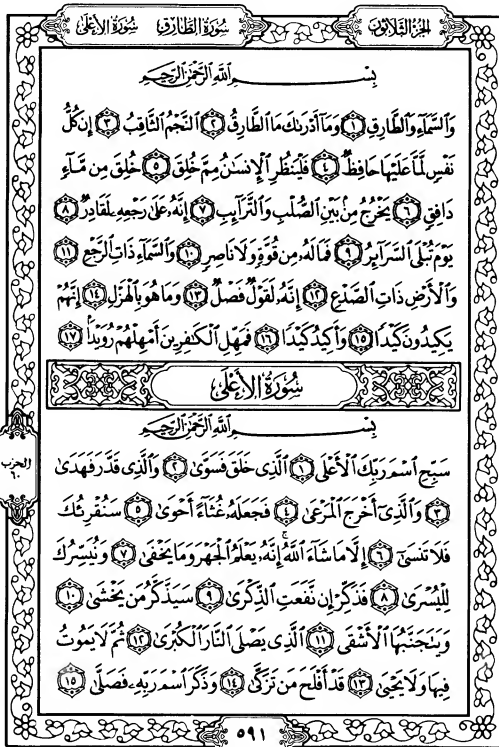 الجزء الثلاثون
سورة الطارق سورة الأعلى
بِسْمِ اللَّهِ الرَّحْمَٰنِ الرَّحِيمِ
وَالسَّمَاءِ وَالطَّارِقِ ١ وَمَا أَدْرَىٰكَ مَا الطَّارِقُ ٢ النَّجْمُ الثَّاقِبُ ٣ إِن كُلُّ
نَفْسٍ لَّمَّا عَلَيْهَا حَافِظٌ ٤ فَلْيَنظُرِ الْإِنسَٰنُ مِمَّ خُلِقَ ٥ خُلِقَ مِن مَّاءٍ
دَافِقٍ ٦ يَخْرُجُ مِنۢ بَيْنِ الصُّلْبِ وَالتَّرَائِبِ ٧ إِنَّهُۥ عَلَىٰ رَجْعِهِۦ لَقَادِرٌ ٨
يَوْمَ تُبْلَى السَّرَائِرُ ٩ فَمَا لَهُۥ مِن قُوَّةٍ وَلَا نَاصِرٍ ١٠ وَالسَّمَاءِ ذَاتِ الرَّجْعِ ١١
وَالْأَرْضِ ذَاتِ الصَّدْعِ ١٢ إِنَّهُۥ لَقَوْلٌ فَصْلٌ ١٣ وَمَا هُوَ بِالْهَزْلِ ١٤ إِنَّهُمْ
يَكِيدُونَ كَيْدًا ١٥ وَأَكِيدُ كَيْدًا ١٦ فَمَهِّلِ الْكَٰفِرِينَ أَمْهِلْهُمْ رُوَيْدًۢا ١٧
سُورَةُ الْأَعْلَىٰ
بِسْمِ اللَّهِ الرَّحْمَٰنِ الرَّحِيمِ
سَبِّحِ اسْمَ رَبِّكَ الْأَعْلَى ١ الَّذِي خَلَقَ فَسَوَّىٰ ٢ وَالَّذِي قَدَّرَ فَهَدَىٰ
٣ وَالَّذِي أَخْرَجَ الْمَرْعَىٰ ٤ فَجَعَلَهُۥ غُثَاءً أَحْوَىٰ ٥ سَنُقْرِئُكَ
فَلَا تَنسَىٰ ٦ إِلَّا مَا شَاءَ اللَّهُ ۚ إِنَّهُۥ يَعْلَمُ الْجَهْرَ وَمَا يَخْفَىٰ ٧ وَنُيَسِّرُكَ
لِلْيُسْرَىٰ ٨ فَذَكِّرْ إِن نَّفَعَتِ الذِّكْرَىٰ ٩ سَيَذَّكَّرُ مَن يَخْشَىٰ ١٠
وَيَتَجَنَّبُهَا الْأَشْقَى ١١ الَّذِي يَصْلَى النَّارَ الْكُبْرَىٰ ١٢ ثُمَّ لَا يَمُوتُ
فِيهَا وَلَا يَحْيَىٰ ١٣ قَدْ أَفْلَحَ مَن تَزَكَّىٰ ١٤ وَذَكَرَ اسْمَ رَبِّهِۦ فَصَلَّىٰ ١٥
الحزب
٦٠
٥٩١